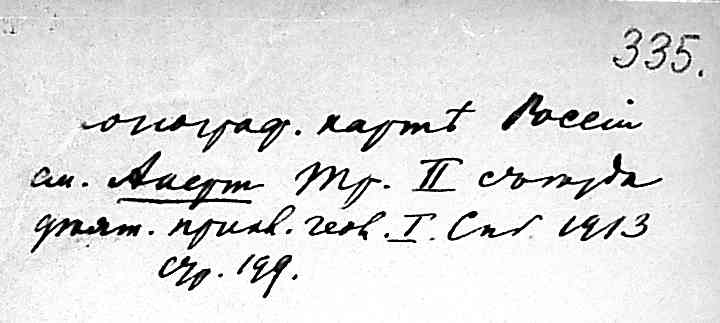 335.
картѣ Россіи
см. Аперт Тр. II съѣзда
дѣят. прикл. геол. I. Спб. 1913
стр. 199.